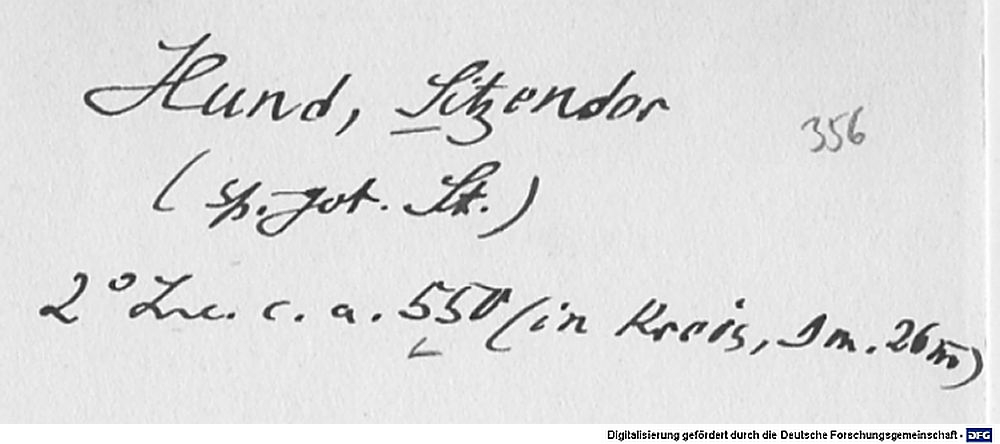 Hund, Sitzendor
356
(sp. got. St.)
2° Inc. c. a. 550 (in Kreis, Dm. 26 m)
Digitalisierung gefördert durch die Deutsche Forschungsgemeinschaft - DFG